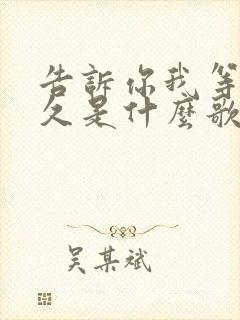 告訴你我等
久是什麼歌
吴某斌